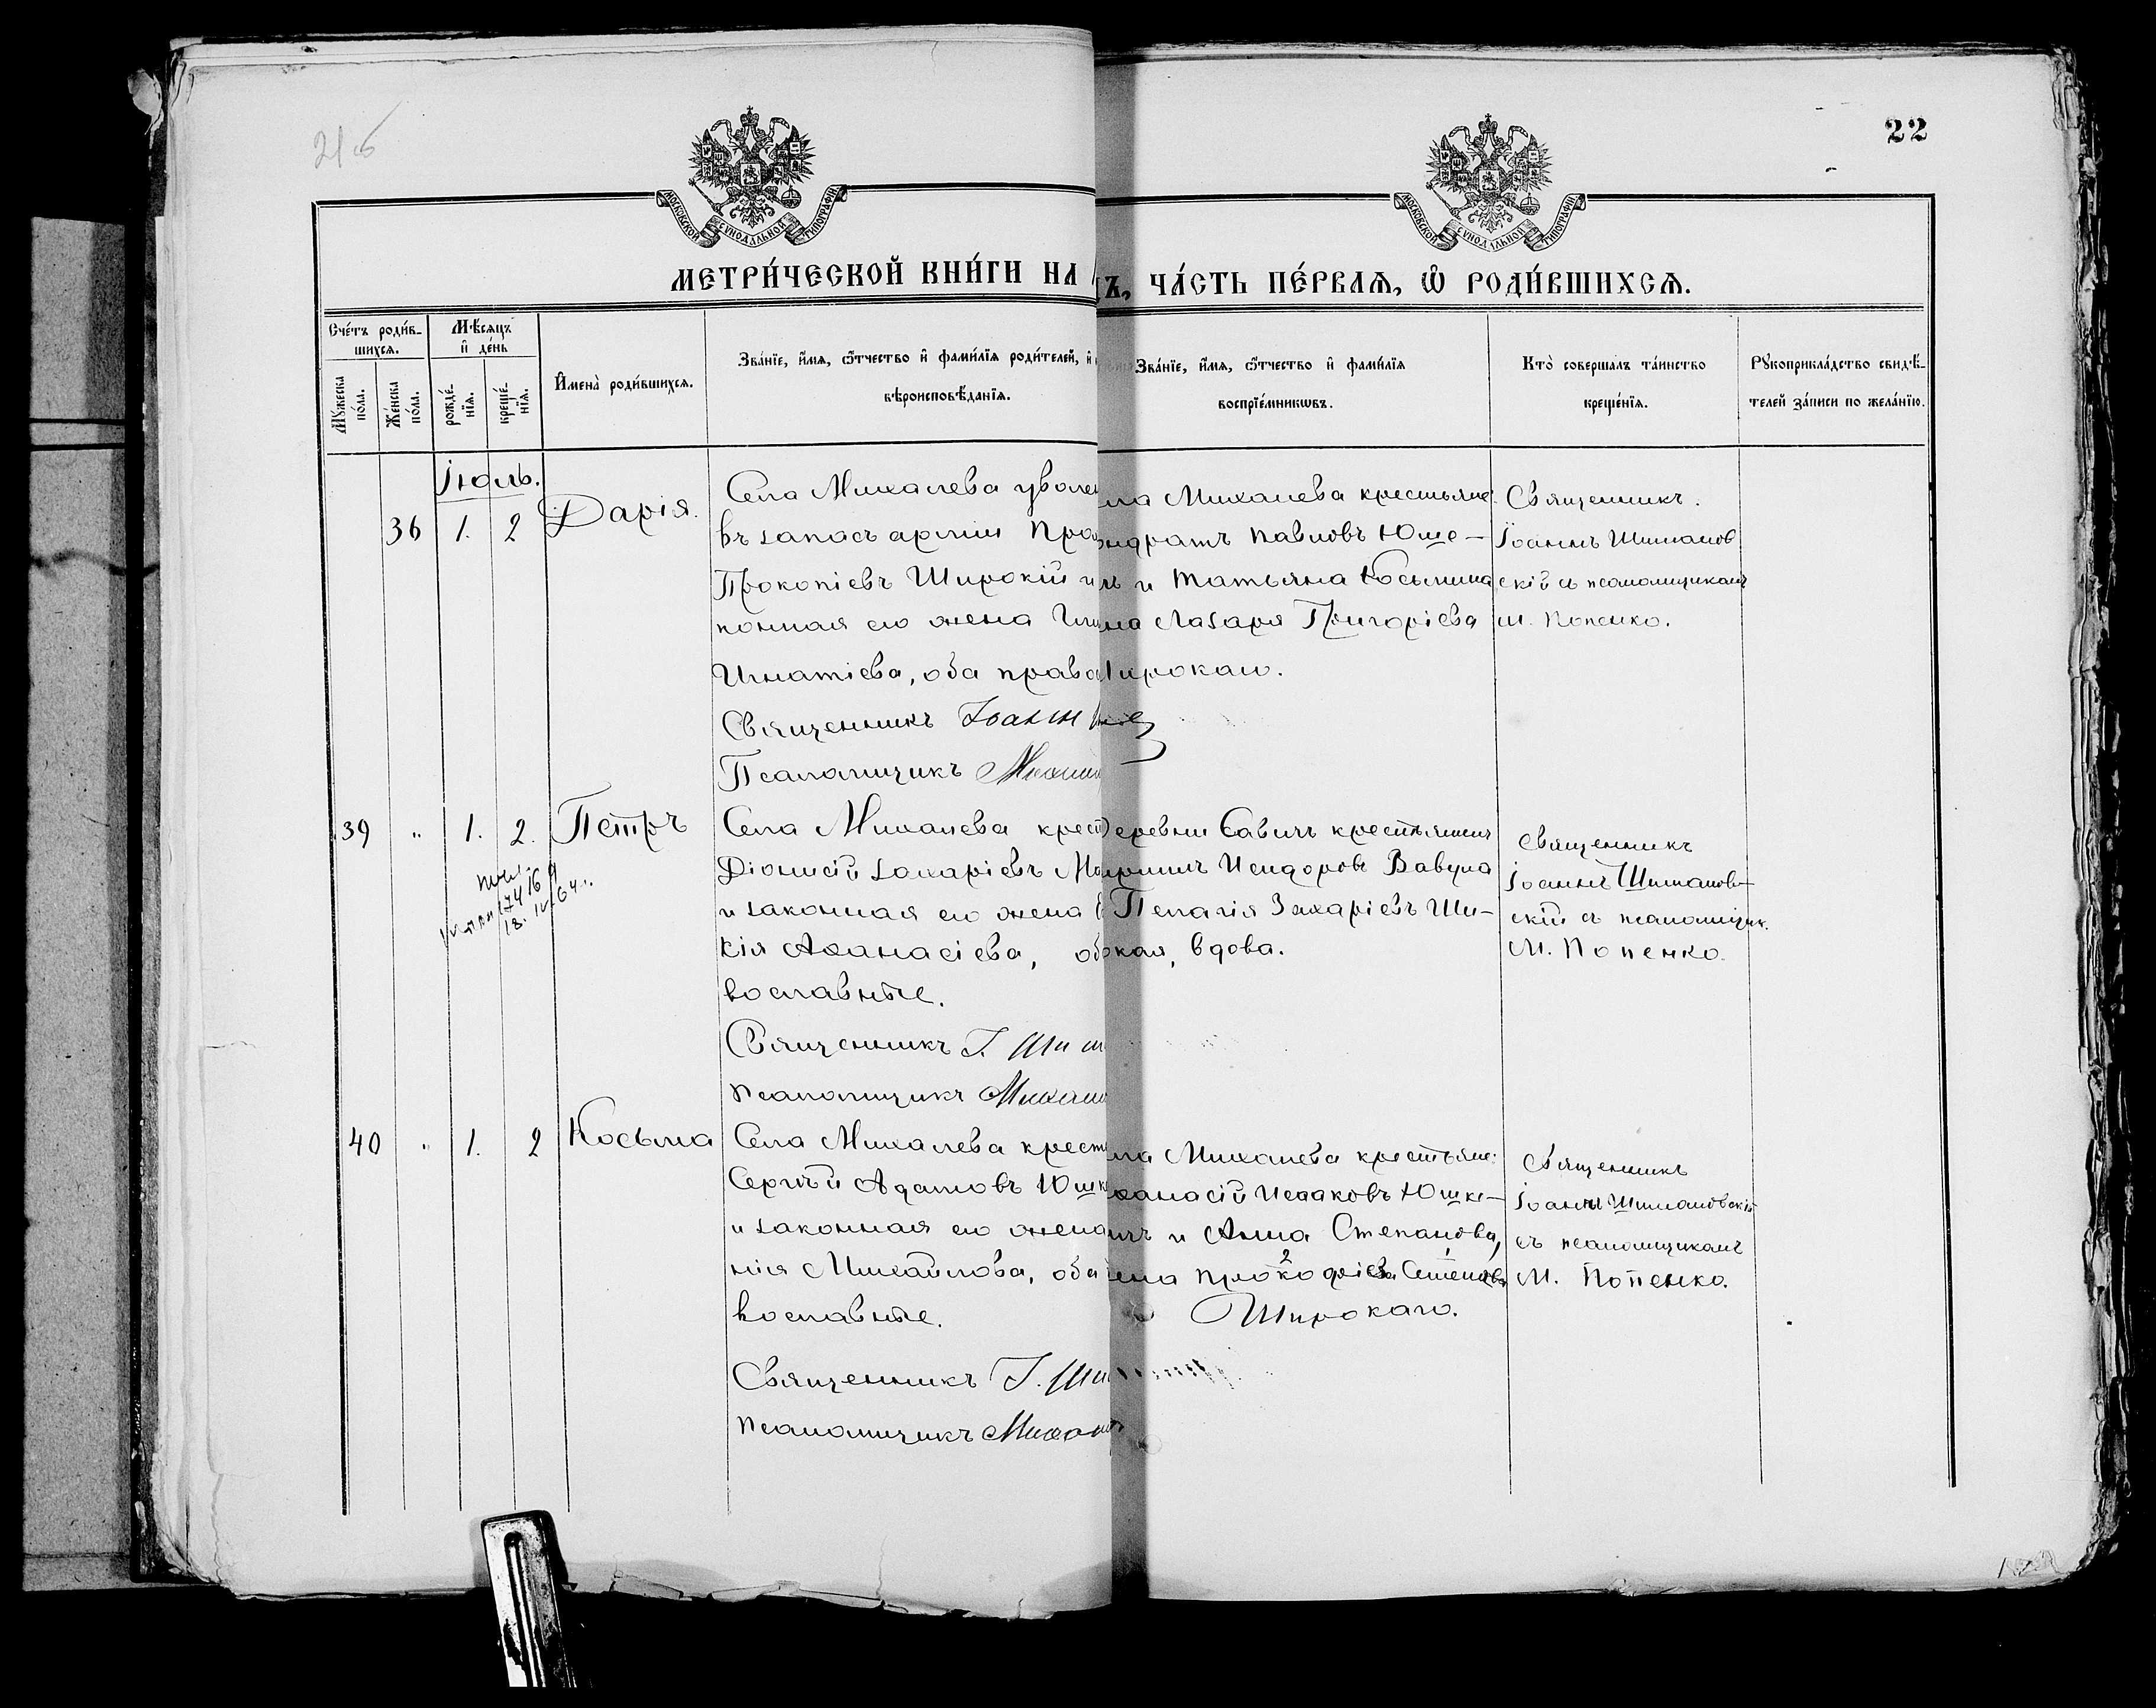 22
МОСКОВСКОЙ СУНОДАЛЬНОЙ ТИПОГРАФІИ
МОСКОВСКОЙ СУНОДАЛЬНОЙ ТИПОГРАФІИ
МЕТРИ́ЧЕСКОЙ КНИ́ГИ НА
Ъ, ЧА́СТЬ ПЕ́РВАѦ, Ѿ РОДИ́ВШИХСѦ.
Сче́тъ роди́в-
шихсѧ.
Мѣ́сѧцъ
и҆ де́нь
Мꙋ́жеска
по́ла.
Же́нска
по́ла.
рожде́-
нїѧ.
креще́-
нїѧ.
И҆мена̀ роди́вшихсѧ.
Зва́нїе, и҆́мѧ, ѻ҆́тчество и҆ фами́лїѧ роди́телей, и҆
вѣроисповѣ́данїѧ.
Зва́нїе, и҆́мѧ, ѻ҆́тчество и҆ фами́лїѧ
воспрїе́мникѡвъ.
Кто̀ соверша́лъ та́инство
креще́нїѧ.
Рꙋкоприкла́дство свидѣ́-
телей за́писи по жела́нїю.
Іюль.
36 1. 2 Дарія.
Села Михалева уволен
въ запасъ арміи Про
Прокопіевъ Широкій и
конная его жена
Игнатіева, оба право
Священникъ Іоанн
Псаломщикъ Михаил
ла Михалева крестьяне:
ндратъ Павловъ Юше-
ъ и Татьяна Косьмина
на Лазаря Григоріева
ирокаго.
Священникъ.
Іоаннъ Шиманов
скій съ псаломщикомъ
М. Попенко.
39 " 1. 2. Петръ
Села Михалева крест
Діонисій Захаріевъ М
и законная его жена
кія Аѳанасіева, об
вославные.
Священникъ І. Шим
Псаломщикъ Михаил
еревни Савичъ крестьянинъ
Исидоровъ Вавула
Пелагія Захаріевъ Ши-
кая, вдова.
Священникъ
Іоаннъ Шиманов-
скій съ псаломщик.
М. Попенко.
40 " 1. 2 Косьма
Села Михалева крест
Сергѣй Адамовъ Юшк
и законная его жена
нія Михайлова, оба
вославные.
Священникъ І. Ши
Псаломщикъ Михаил
ла Михалева крестьяне:
ѳанасій Исааковъ Юшке-
и Анна Степанова,
ена
Широкаго.
Священникъ
Іоаннъ Шимановскій
съ псаломщикомъ
М. Попенко.